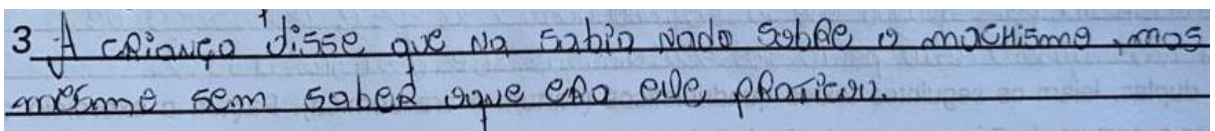 3 A criança disse que na sabia nada sobre o machismo, mas
mesmo sem saber oque era ele praticou.